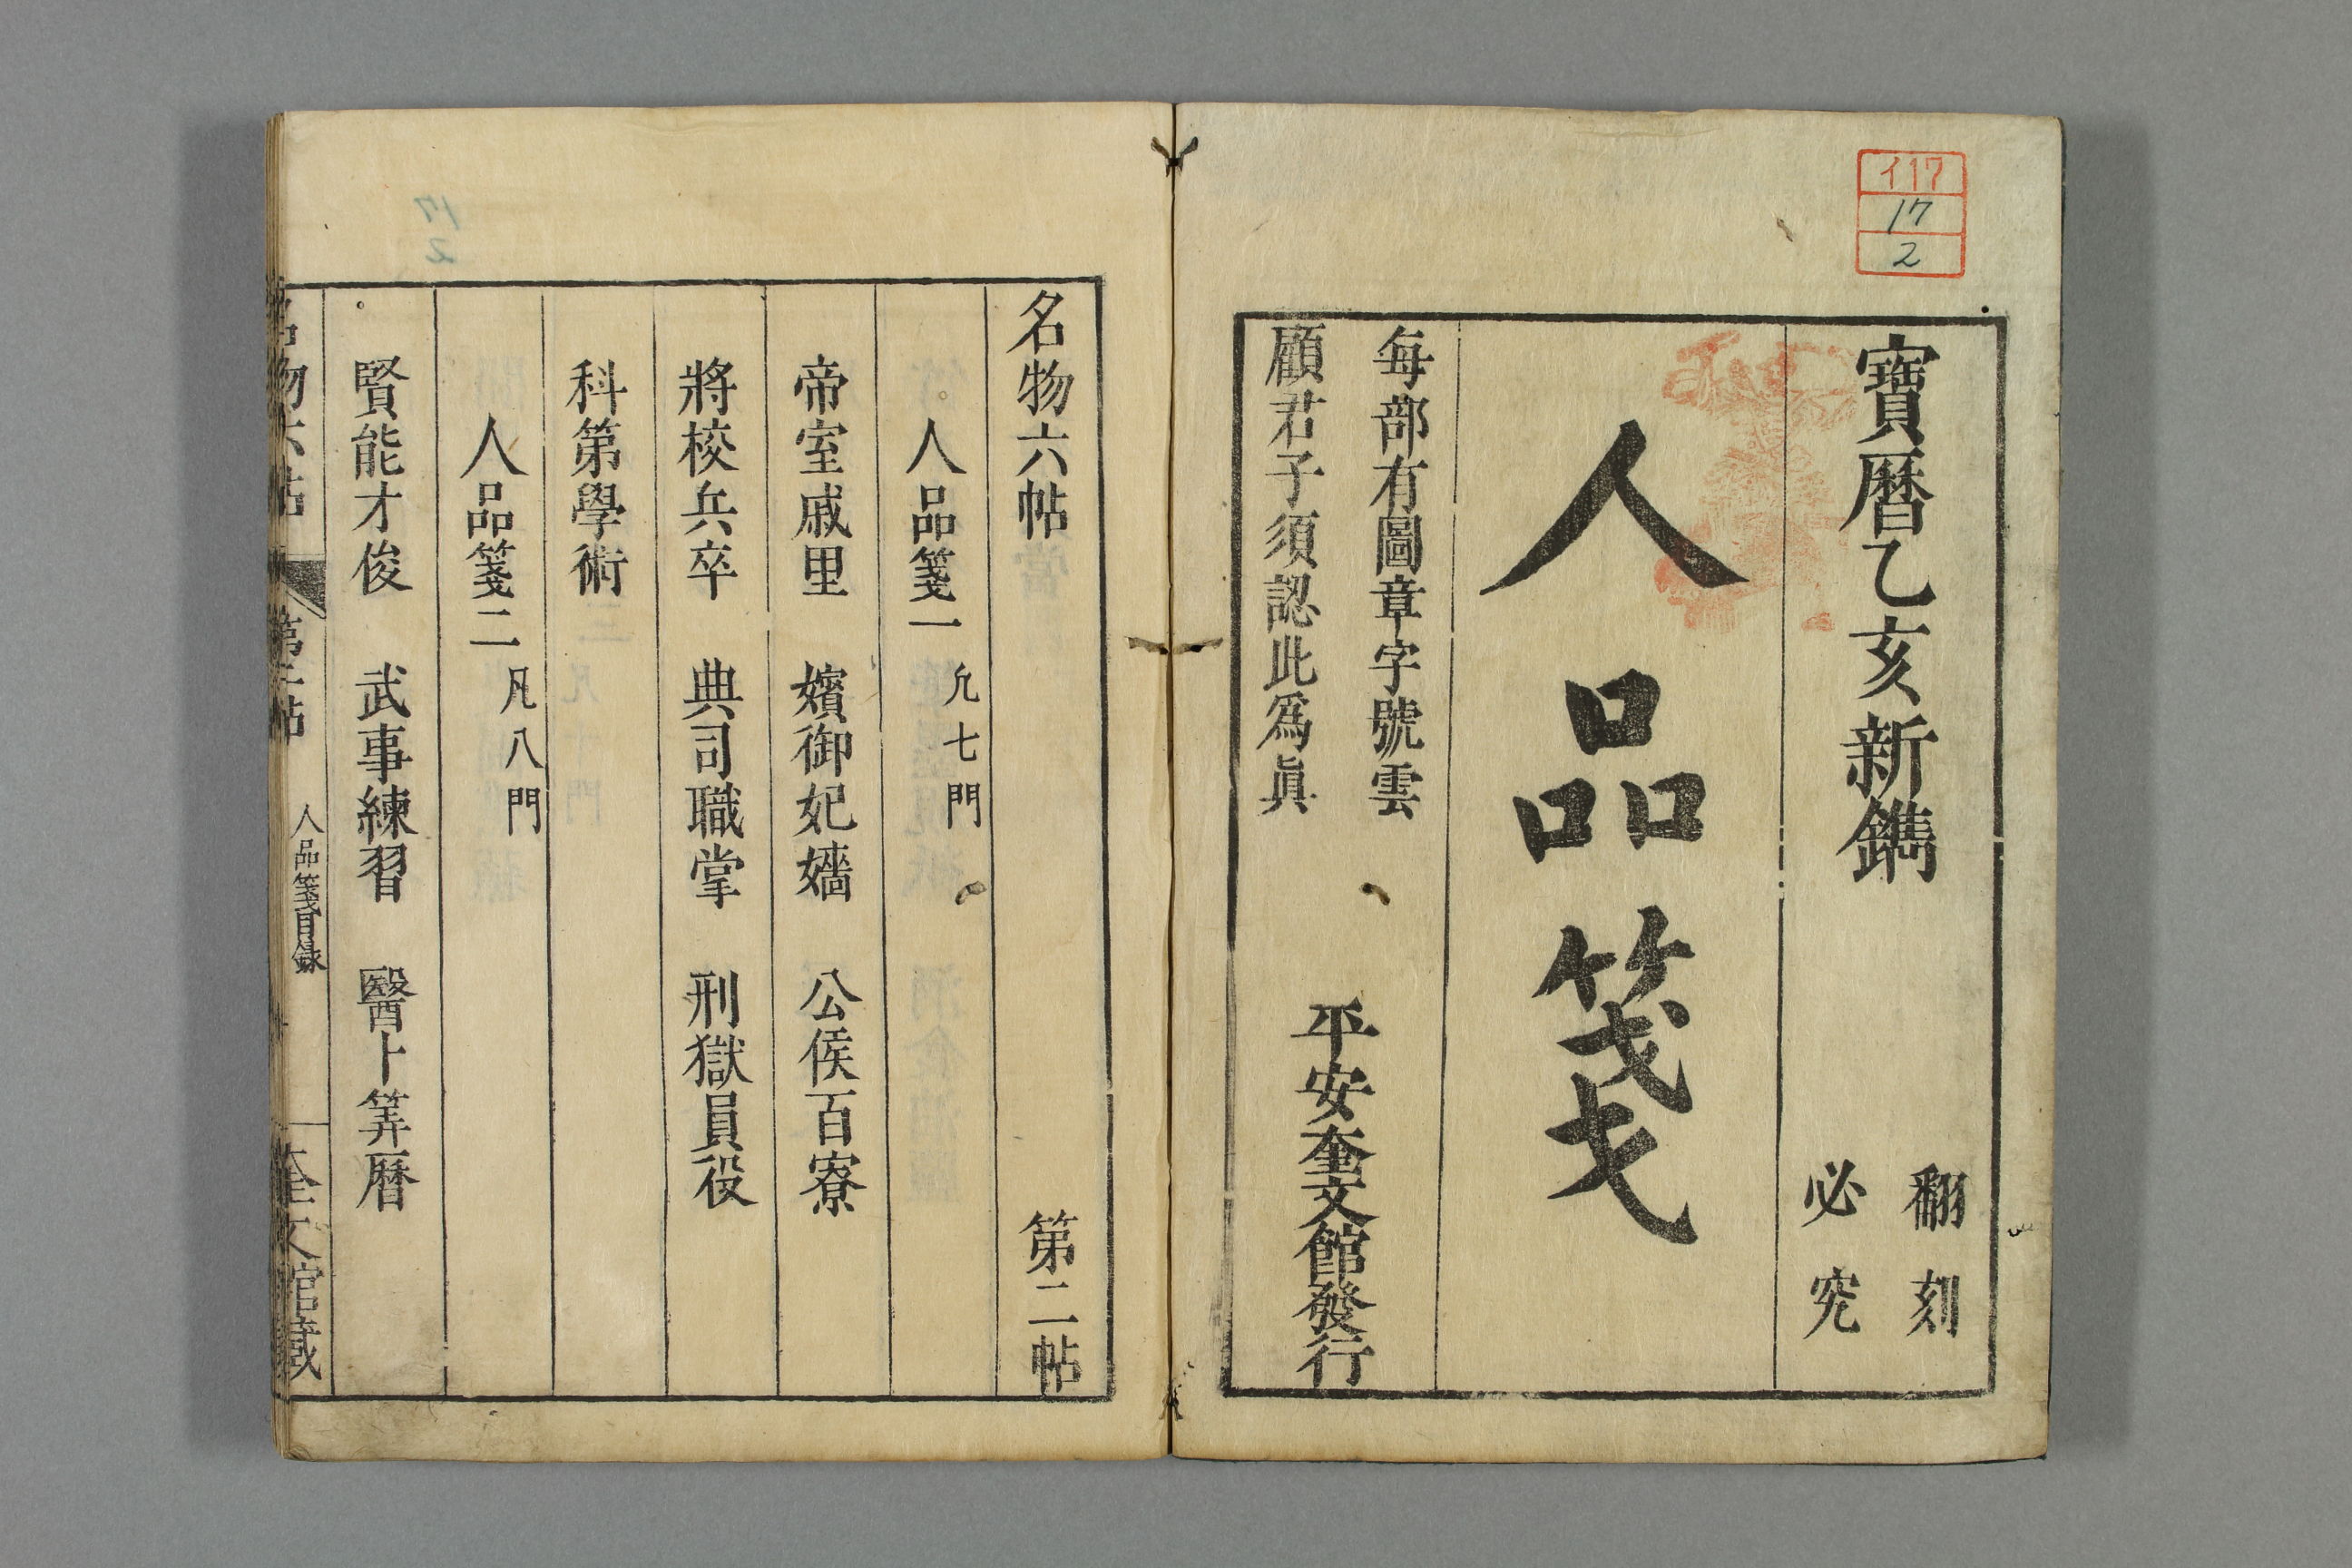 イ17
17
2
寶暦乙亥新鐫
翻刻
必究
人品箋
每部有圖章字號雲
顧君子須認此為眞
平安奎文館發行
名物六帖　第二帖
人品箋一　凡七門
帝室戚里　嬪御妃嬙　公侯百寮
將校兵卒　典司職掌　刑獄員役
科第學術
人品箋二　凡八門
賢能才俊　武事練習　醫卜筭暦
名物六帖　第二帖　人品箋目録　奎文館藏